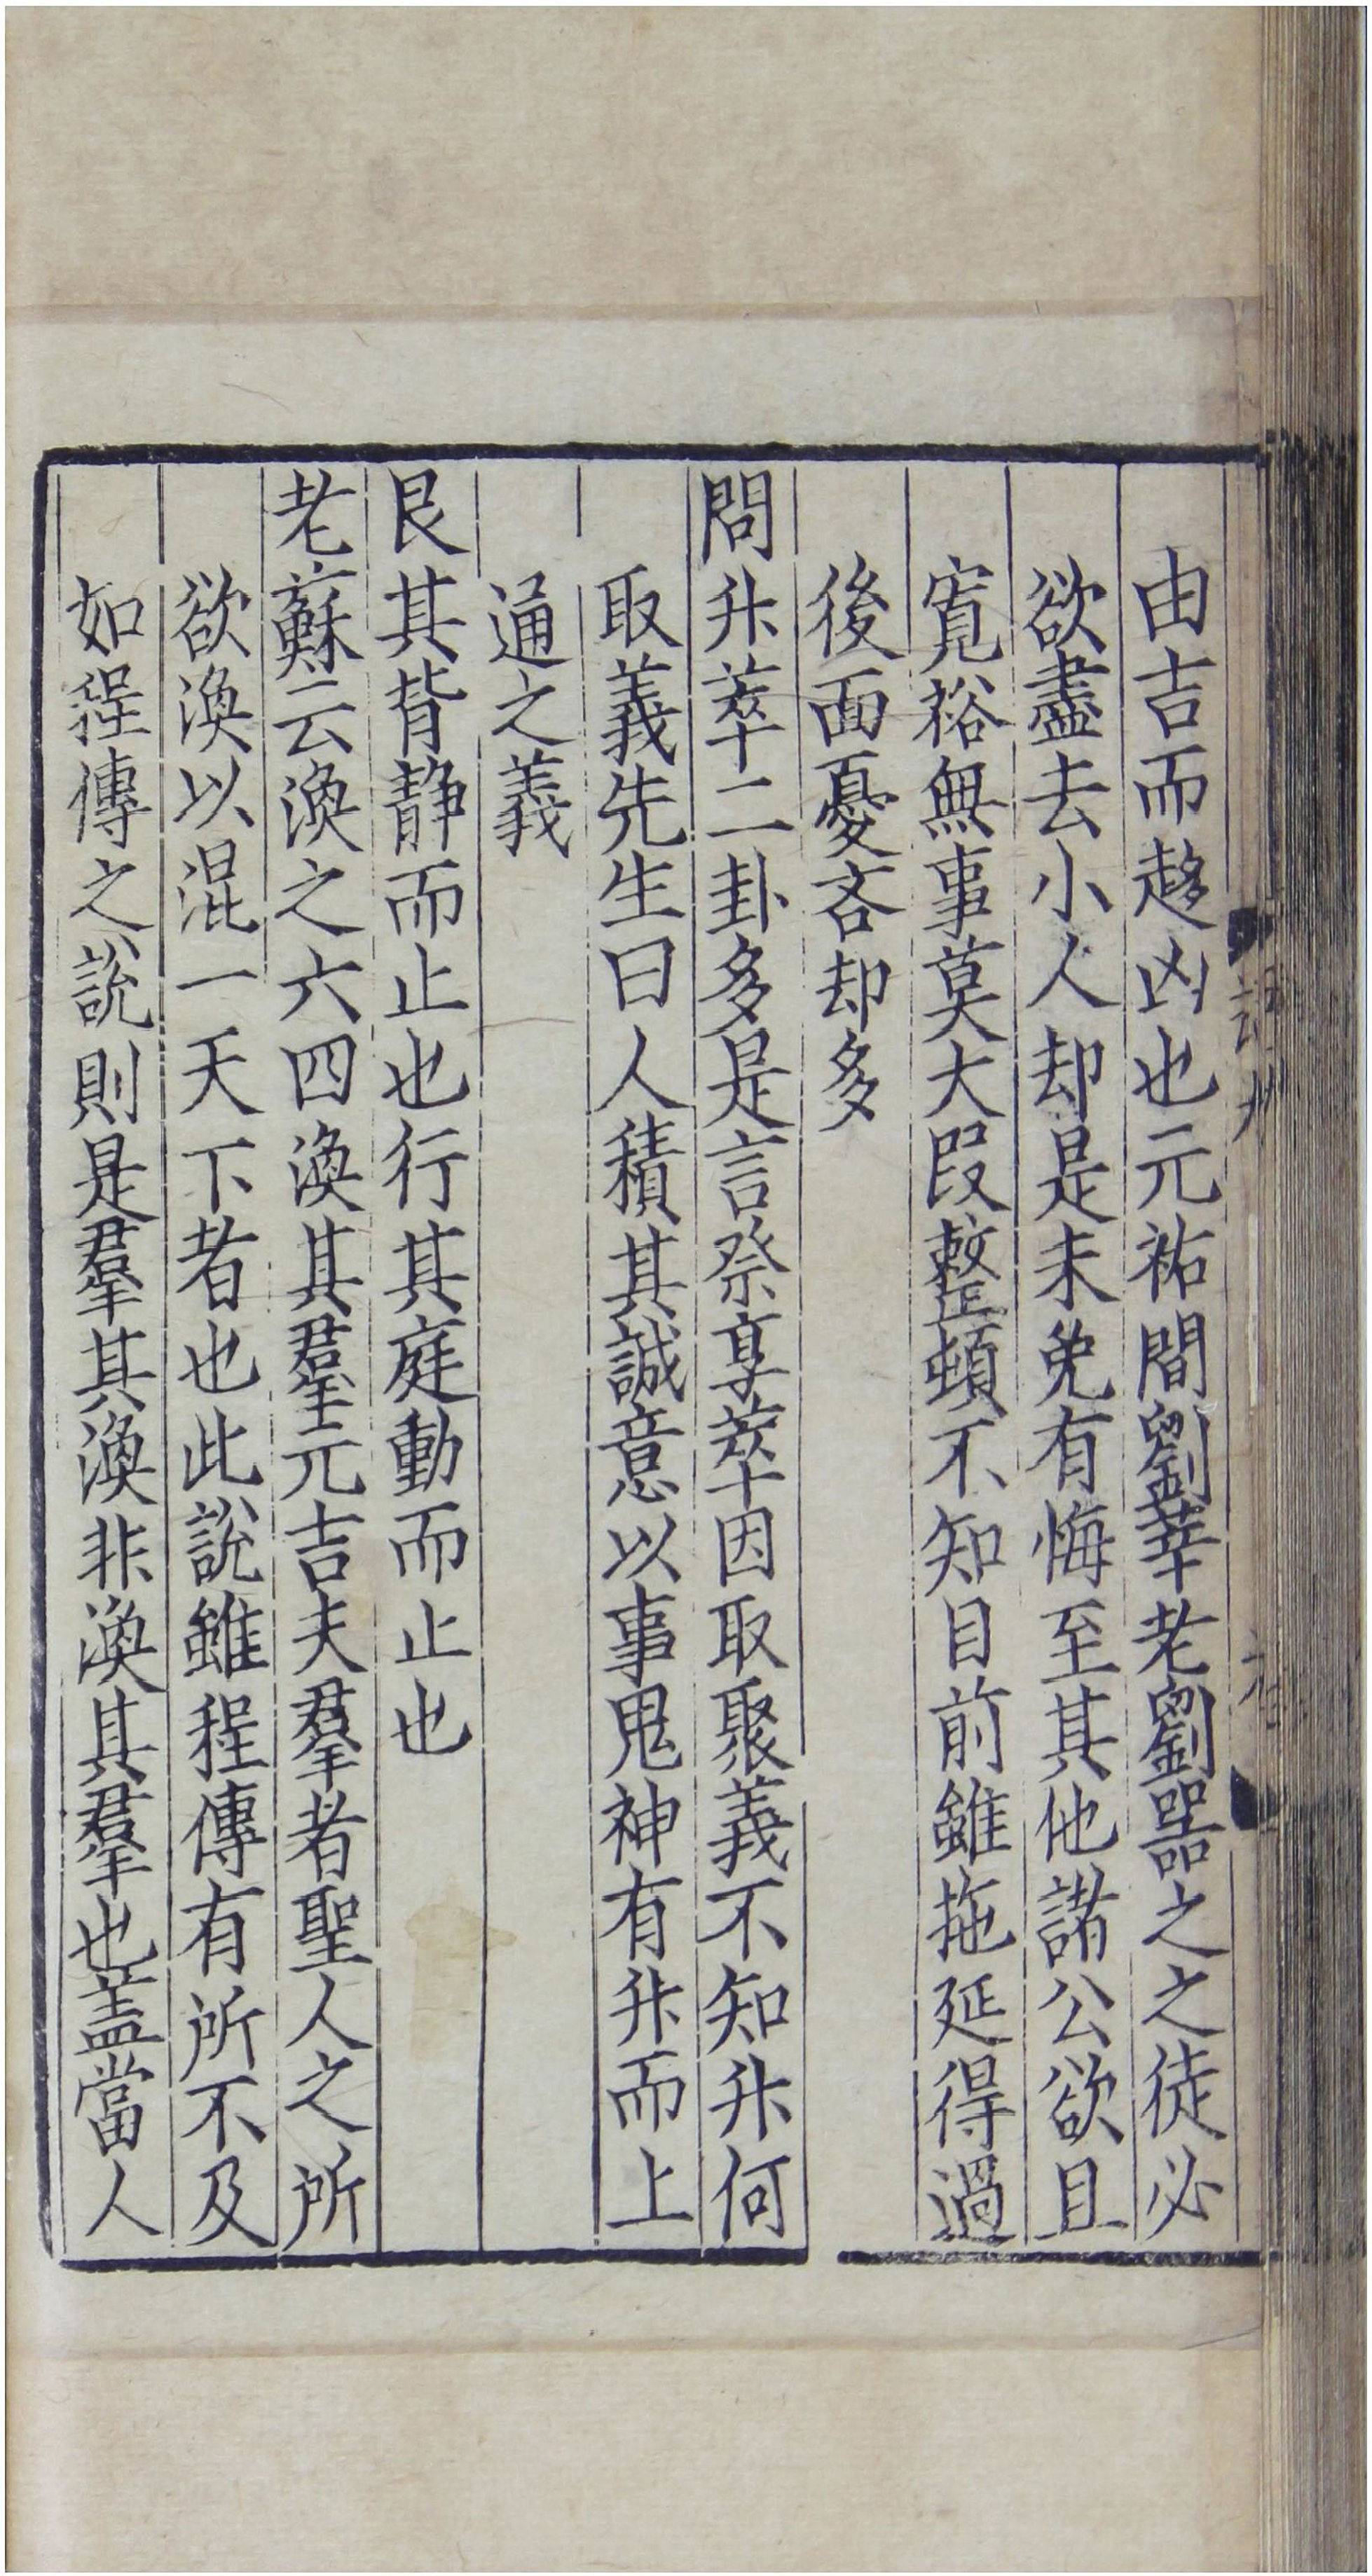 由吉而趍凶也元祐間劉莘老劉器之之徒必
欲盡去小人却是未免有悔至其他諸公欲且
寛裕無事莫大叚整頓不知目前雖拖延得過
後面憂吝却多
問升萃二卦多是言祭享萃因取聚義不知升何
取義先生曰人積其誠意以事鬼神有升而上
通之義
艮其背静而止也行其庭動而止也
老蘇云渙之六四渙其羣元吉夫羣者聖人之所
欲渙以混一天下者也此說雖程傳有所不及
如程傳之說則是羣其渙非渙其羣也盖當人